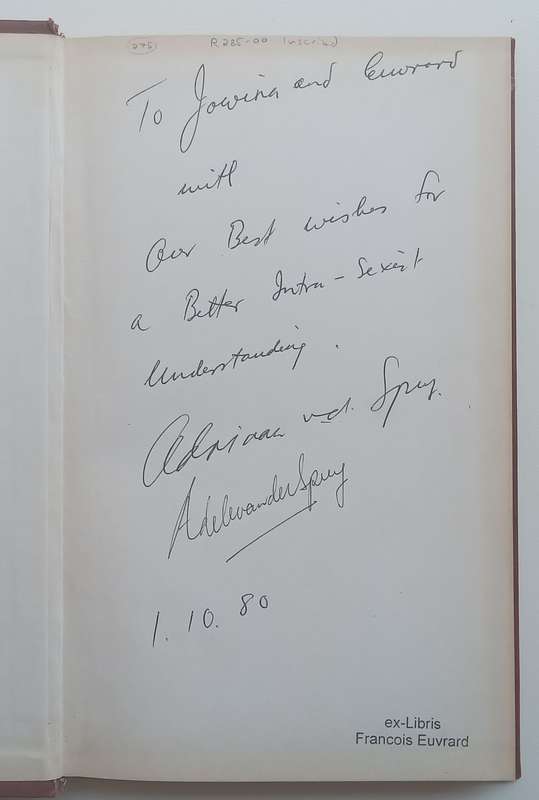 275 R285-00 Inscribed
To Jowina and Euvrard
with
Our Best wishes for
a Better Intra-Sexist
Understanding.
Adriaan v.d. Spuy.
Adele van der Spuy
1. 10. 80
ex-Libris
Francois Euvrard